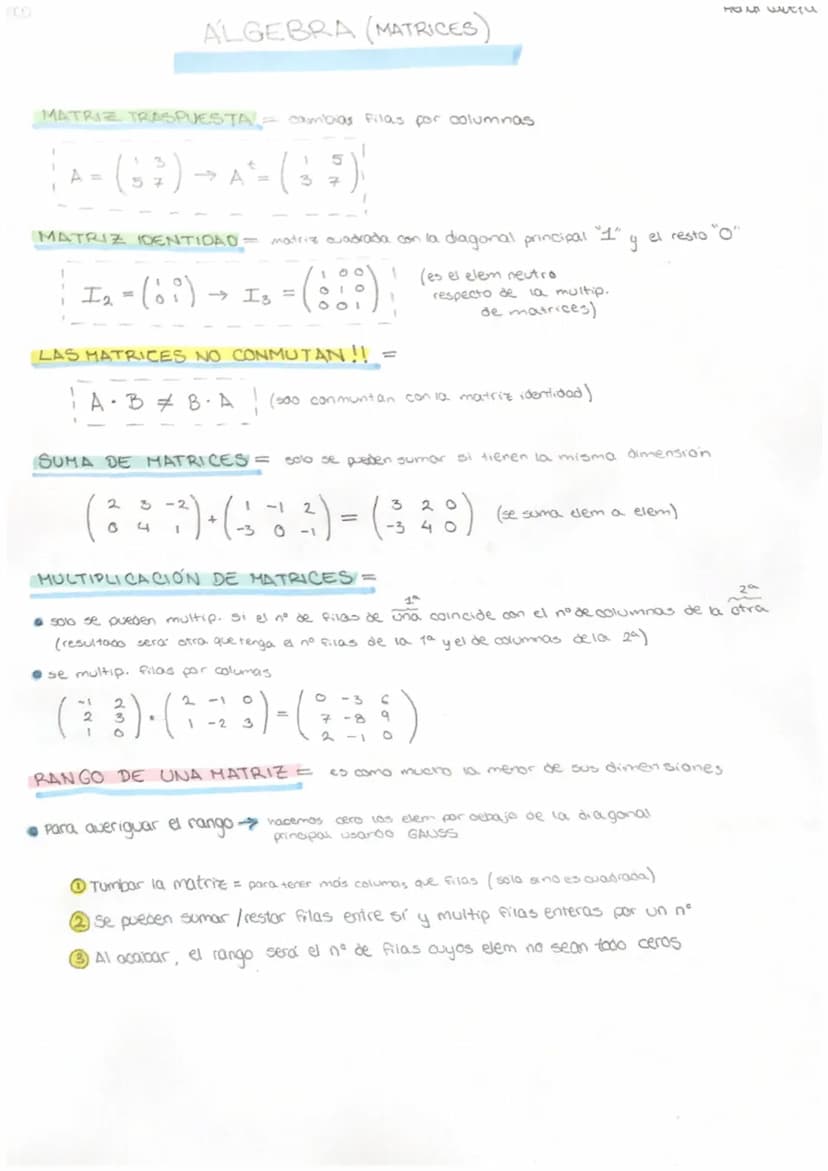 ÁLGEBRA (MATRICES)
MATRIZ TRASPUESTA = cambias filas por columnas
A = ( 1 3 ; 5 7 ) → Aᵗ = ( 1 5 ; 3 7 )
MATRIZ IDENTIDAD = matriz cuadrada con la diagonal principal "1" y el resto "0"
I₂ = ( 1 0 ; 0 1 ) → I₃ = ( 1 0 0 ; 0 1 0 ; 0 0 1 )
(es el elem neutro
respecto de la multip.
de matrices)
LAS MATRICES NO CONMUTAN!! =
A · B ≠ B · A (solo conmuntan con la matriz identidad)
SUMA DE MATRICES = solo se pueden sumar si tienen la misma dimensión
( 2 3 -2 ; 0 4 1 ) + ( 1 -1 2 ; -3 0 -1 ) = ( 3 2 0 ; -3 4 0 ) (se suma elem a elem)
MULTIPLICACIÓN DE MATRICES =
1ª 2ª
• solo se pueden multip. si el nº de filas de una coincide con el nº de columnas de la otra
(resultado será otra que tenga el nº filas de la 1ª y el de columnas de la 2ª)
• se multip. filas por colum​as
( -1 2 ; 2 3 ; 1 0 ) · ( 2 -1 0 ; 1 -2 3 ) = ( 0 -3 6 ; 7 -8 9 ; 2 -1 0 )
RANGO DE UNA MATRIZ = es como mucho la menor de sus dimensiones
• Para averiguar el rango → hacemos cero los elem por debajo de la diagonal
principal usando GAUSS
① Tumbar la matriz = para tener más columas que filas (solo si no es cuadrada)
② Se pueden sumar / restar filas entre sí y multip filas enteras por un nº
③ Al acabar, el rango será el nº de filas cuyos elem no sean todo ceros